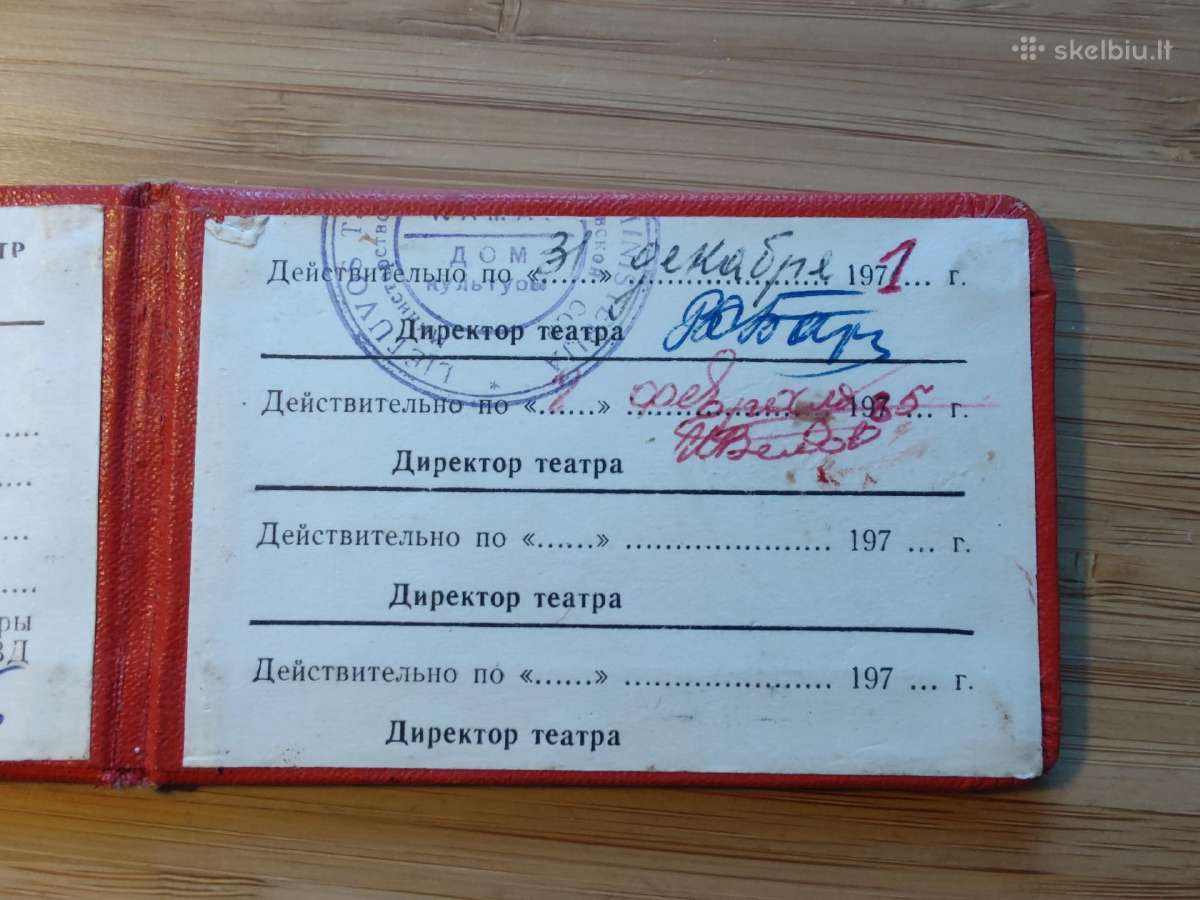 skelbiu.lt
ТР
ры
ВД
LIETUVOS T
ДОМ
культуры
Действительно по «31» декабря 1971... г.
Директор театра
Действительно по «......» февраля 197 ... г.
Директор театра
Действительно по «......» ..................... 197 ... г.
Директор театра
Действительно по «......» ..................... 197 ... г.
Директор театра